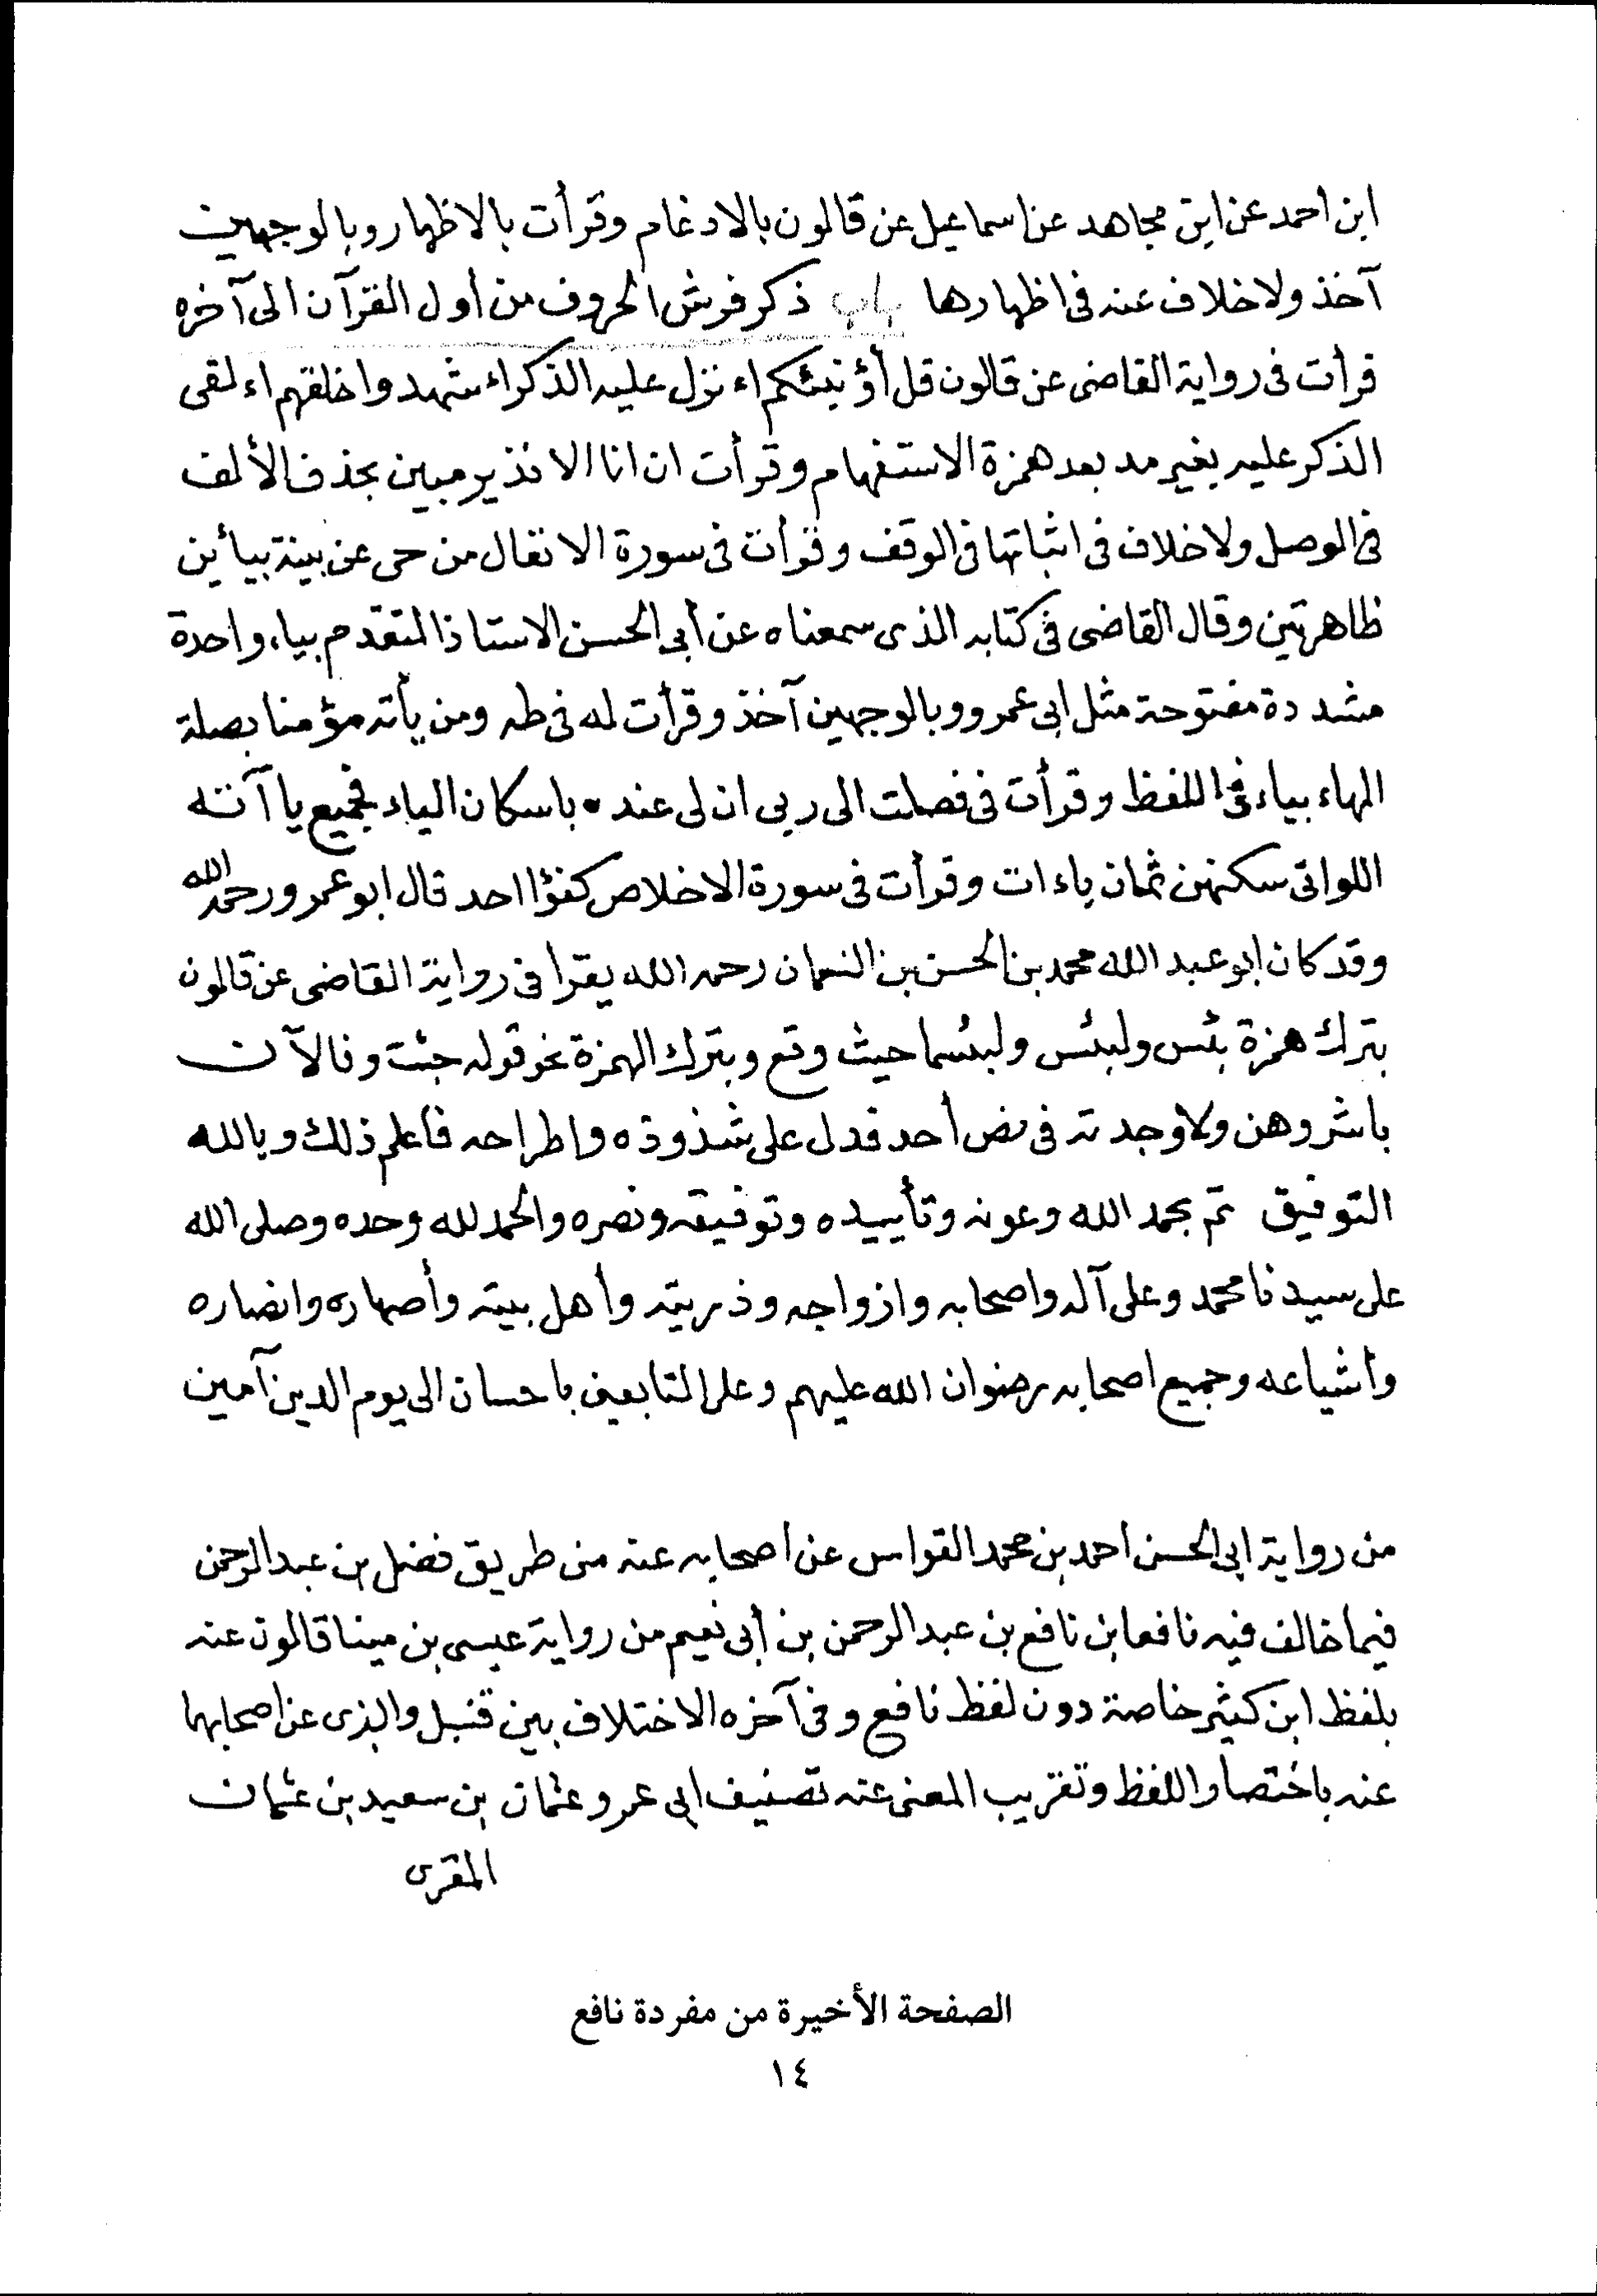 ابن احمد عن ابن مجاهد عن اسماعيل عن قالون بالادغام وقرأت بالاظهار وبالوجهين
آخذ ولا خلاف عنه فى اظهارها باب ذكر فرش الحروف من أول القرآن الى آخره
قرأت فى رواية القاضى عن قالون قل أؤنبئكم اء نزل عليه الذكر اء شهدوا خلقهم اء لقى
الذكر عليه بغير مد بعد همزة الاستفهام وقرأت ان انا الا نذير مبين بحذف الألف
فى الوصل ولا خلاف فى اثباتها فى الوقف وقرأت فى سورة الانفال من حى عن بينة بيائين
ظاهرتين وقال القاضى فى كتابه الذى سمعناه عن أبى الحسن الاستاذ المتقدم بياء واحدة
مشددة مفتوحة مثل ابى عمرو وبالوجهين آخذ وقرأت له فى طه ومن يأته مؤمنا بصلة
الهاء بياء فى اللفظ وقرأت فى فصلت الى ربى ان لى عنده باسكان الياء فجميع ياآته
اللواتى سكنهن ثمان ياءات وقرأت فى سورة الاخلاص كفؤا احد قال ابو عمرو رحمه الله
وقد كان ابو عبد الله محمد بن الحسن بن النعمان رحمه الله يقرا فى رواية القاضى عن قالون
بترك همزة بئس ولبئس ولبئسما حيث وقع وبترك الهمزة نحو قوله جئت وفالآن
باشروهن ولا وجدته فى نص أحد فدل على شذوذه واطراحه فاعلم ذلك وبالله
التوفيق تم بحمد الله وعونه وتأييده وتوفيقه ونصره والحمد لله وحده وصلى الله
على سيدنا محمد وعلى آله واصحابه وازواجه وذريته وأهل بيته وأصهاره وانصاره
وأشياعه وجميع اصحابه رضوان الله عليهم وعلى التابعين باحسان الى يوم الدين آمين
من رواية ابى الحسن احمد بن محمد القواس عن اصحابه عنه من طريق فضل بن عبد الرحمن
فيما خالف فيه نافعا بن نافع بن عبد الرحمن بن أبى نعيم من رواية عيسى بن مينا قالون عنه
بلفظ ابن كثير خاصة دون لفظ نافع وفى آخره الاختلاف بين قنبل والبزى عن اصحابهما
عنه باختصار اللفظ وتقريب المعنى عنه تصنيف ابى عمرو عثمان بن سعيد بن عثمان
المقرى
الصفحة الأخيرة من مفردة نافع
١٤